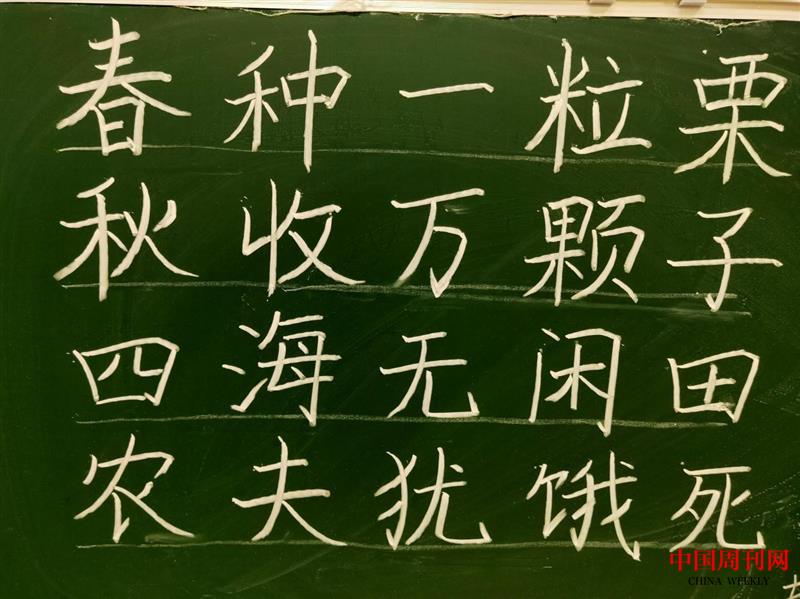 春种一粒栗
秋收万颗子
四海无闲田
农夫犹饿死
中国周刊网
CHINA WEEKLY